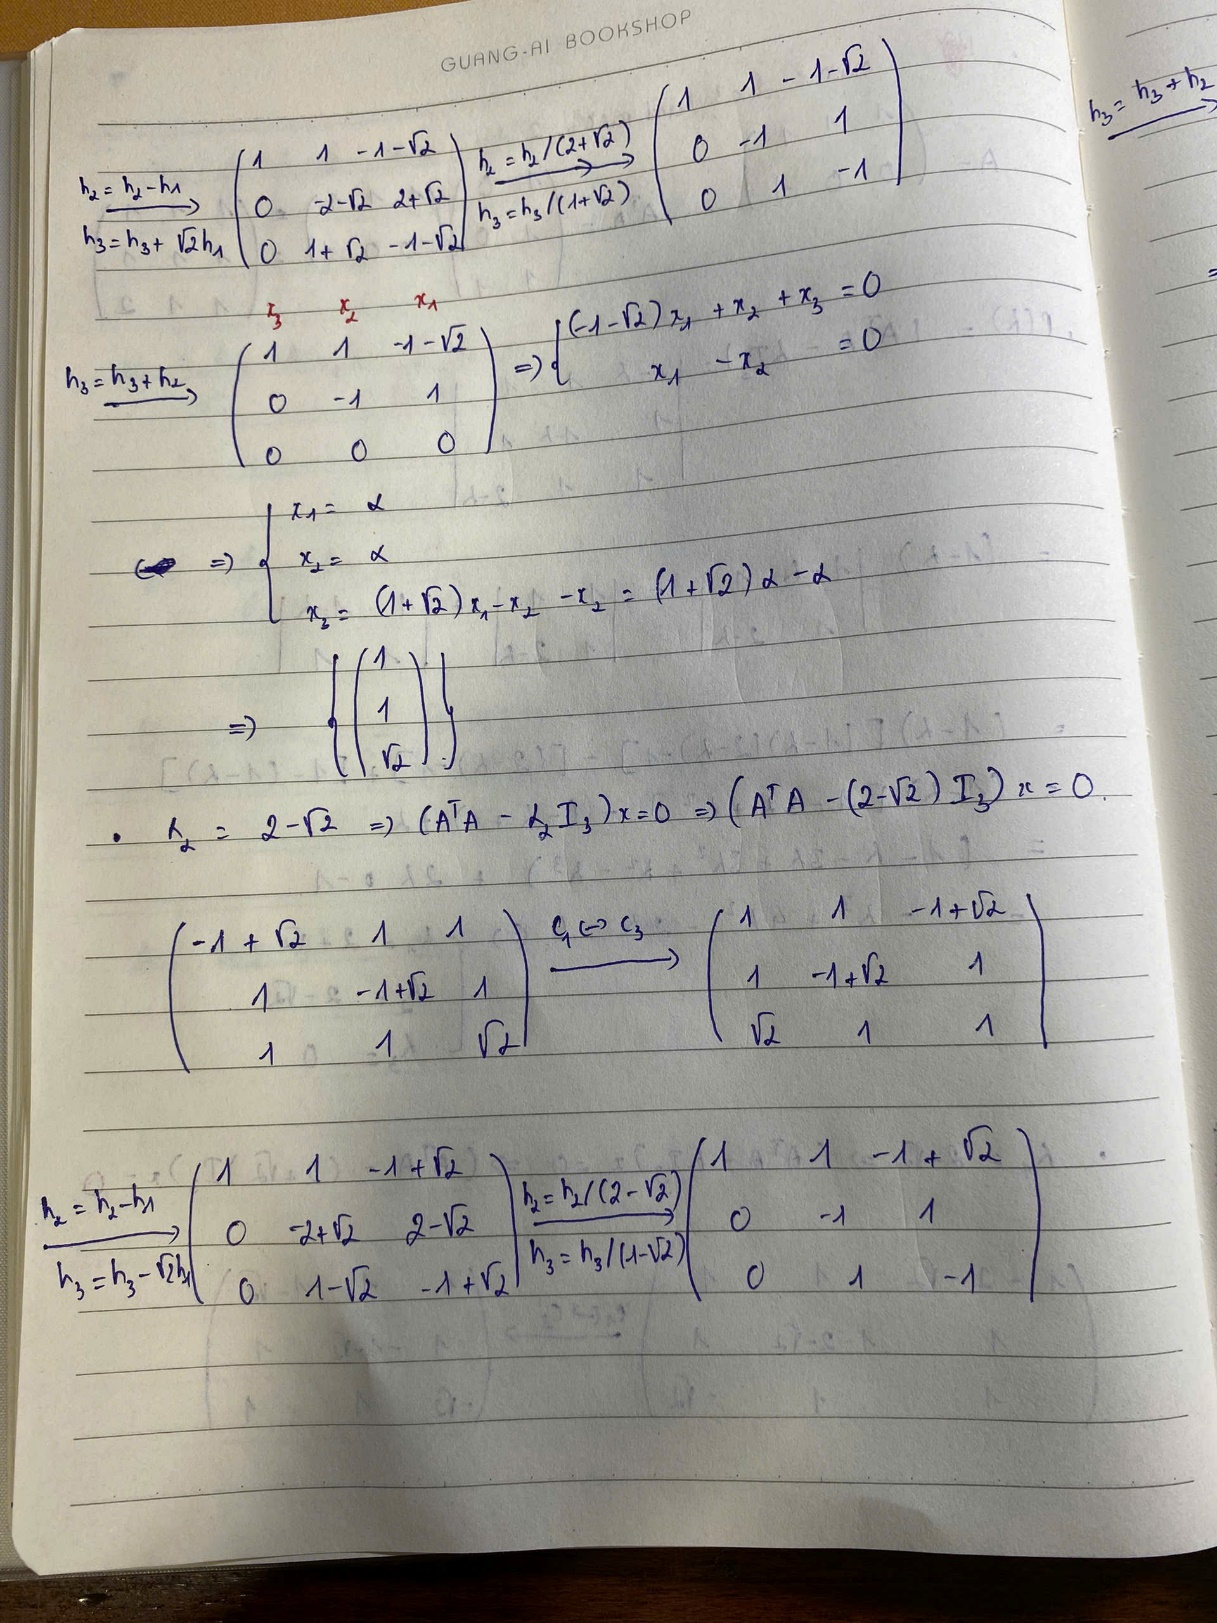 GUANG-AI BOOKSHOP
h₂ = h₂ - h₁
h₃ = h₃ + √2h₁
1 1 -1-√2
0 -2-√2 2+√2
0 1+√2 -1-√2
h₂ = h₂/(2+√2)
h₃ = h₃/(1+√2)
1 1 -1-√2
0 -1 1
0 1 -1
h₃ = h₃ + h₂
x₃ x₂ x₁
h₃ = h₃ + h₂
1 1 -1-√2
0 -1 1
0 0 0
=> { (-1-√2)x₁ + x₂ + x₃ = 0
x₁ - x₂ = 0
=> { x₁ = α
x₂ = α
x₃ = (1+√2)x₁ - x₂ - x₂ = (1+√2)α - α
=> { ( 1
1
√2 ) }
• λ₂ = 2-√2 => (AᵀA - λ₂I₃)x = 0 => (AᵀA - (2-√2)I₃)x = 0.
-1+√2 1 1
1 -1+√2 1
1 1 √2
c₁ <-> c₃
1 1 -1+√2
1 -1+√2 1
√2 1 1
h₂ = h₂ - h₁
h₃ = h₃ - √2h₁
1 1 -1+√2
0 -2+√2 2-√2
0 1-√2 -1+√2
h₂ = h₂/(2-√2)
h₃ = h₃/(1-√2)
1 1 -1+√2
0 -1 1
0 1 -1